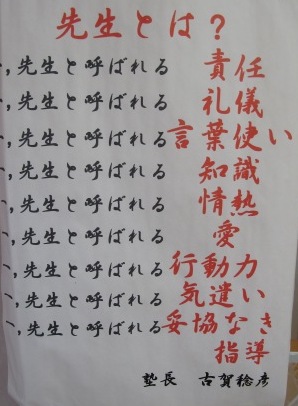 先生とは?
一,先生と呼ばれる責任
一,先生と呼ばれる礼儀
一,先生と呼ばれる言葉使い
一,先生と呼ばれる知識
一,先生と呼ばれる情熱
一,先生と呼ばれる愛
一,先生と呼ばれる行動力
一,先生と呼ばれる気遣い
一,先生と呼ばれる妥協なき指導
塾長 古賀稔彦